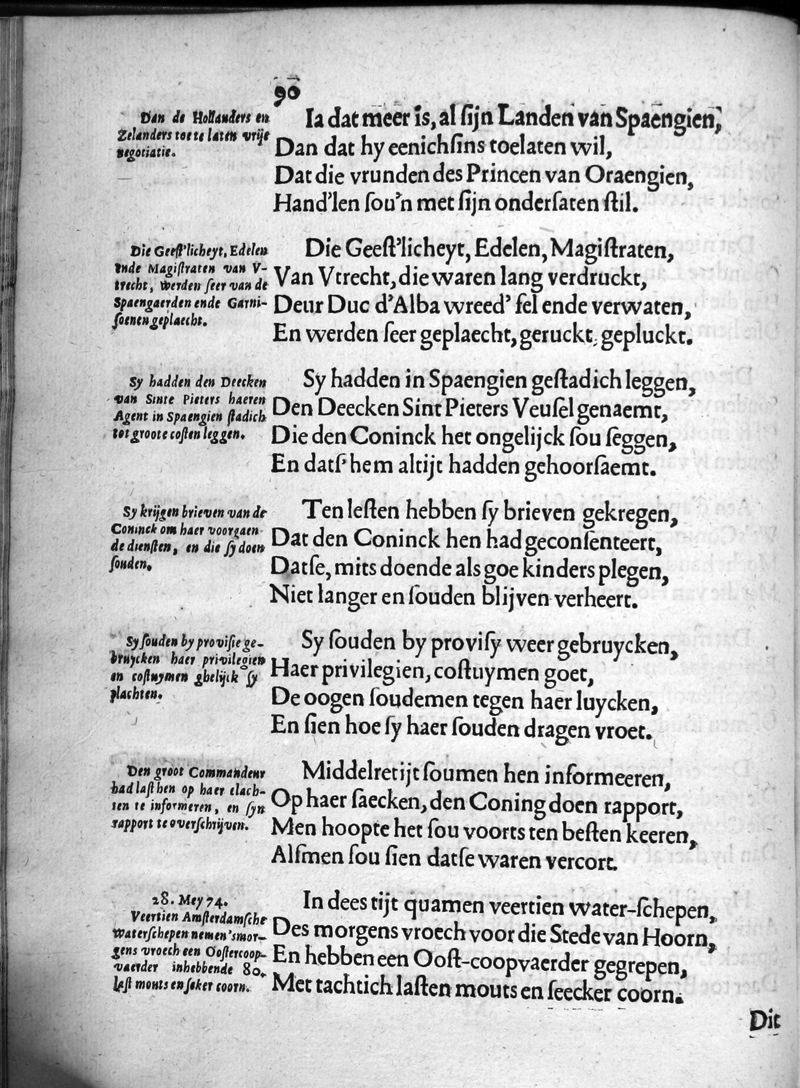 90
Dan de Hollanders en
Zelanders toe te laten vrije
negotiatie.
Ia dat meer is, al ſijn Landen van Spaengien,
Dan dat hy eenichſins toelaten wil,
Dat die vrunden des Princen van Oraengien,
Hand'len ſou'n met ſijn onderſaten ſtil.
Die Geeſt'licheyt, Edelen
ende Magiſtraten van V-
trecht, werden ſeer van de
Spaengaerden ende Garni-
ſoenen geplaecht.
Die Geeſt'licheyt, Edelen, Magiſtraten,
Van Vtrecht, die waren lang verdruckt,
Deur Duc d'Alba wreed' fel ende verwaten,
En werden ſeer geplaecht, geruckt, gepluckt.
Sy hadden den Deecken
van Sinte Pieters haeren
Agent in Spaengien ſtadich
tot groote coſten leggen.
Sy hadden in Spaengien geſtadich leggen,
Den Deecken Sint Pieters Veuſel genaemt,
Die den Coninck het ongelijck ſou ſeggen,
En datſ' hem altijt hadden gehoorſaemt.
Sy krijgen brieven van de
Coninck om haer voorgaen-
de dienſten, en die ſy doen
ſouden.
Ten leſten hebben ſy brieven gekregen,
Dat den Coninck hen had geconſenteert,
Datſe, mits doende als goe kinders plegen,
Niet langer en ſouden blijven verheert.
Sy ſouden by proviſie ge-
bruycken haer privilegien
en coſtuymen ghelijck ſy
plachten.
Sy ſouden by proviſy weer gebruycken,
Haer privilegien, coſtuymen goet,
De oogen ſoudemen tegen haer luycken,
En ſien hoe ſy haer ſouden dragen vroet.
Den groot Commandeur
had laſt hen op haer clach-
ten te informeren, en ſijn
rapport te overſchrijven.
Middelretijt ſoumen hen informeeren,
Op haer ſaecken, den Coning doen rapport,
Men hoopte het ſou voorts ten beſten keeren,
Alſmen ſou ſien datſe waren vercort.
28. Mey 74.
Veertien Amſterdamſche
Waterſchepen nemen 'smor-
gens vroech een Ooſtercoop-
vaerder inhebbende 80.
laſt mouts en ſeker coorn.
In dees tijt quamen veertien water-ſchepen,
Des morgens vroech voor die Stede van Hoorn,
En hebben een Ooſt-coopvaerder gegrepen,
Met tachtich laſten mouts en ſeecker coorn.
Dit